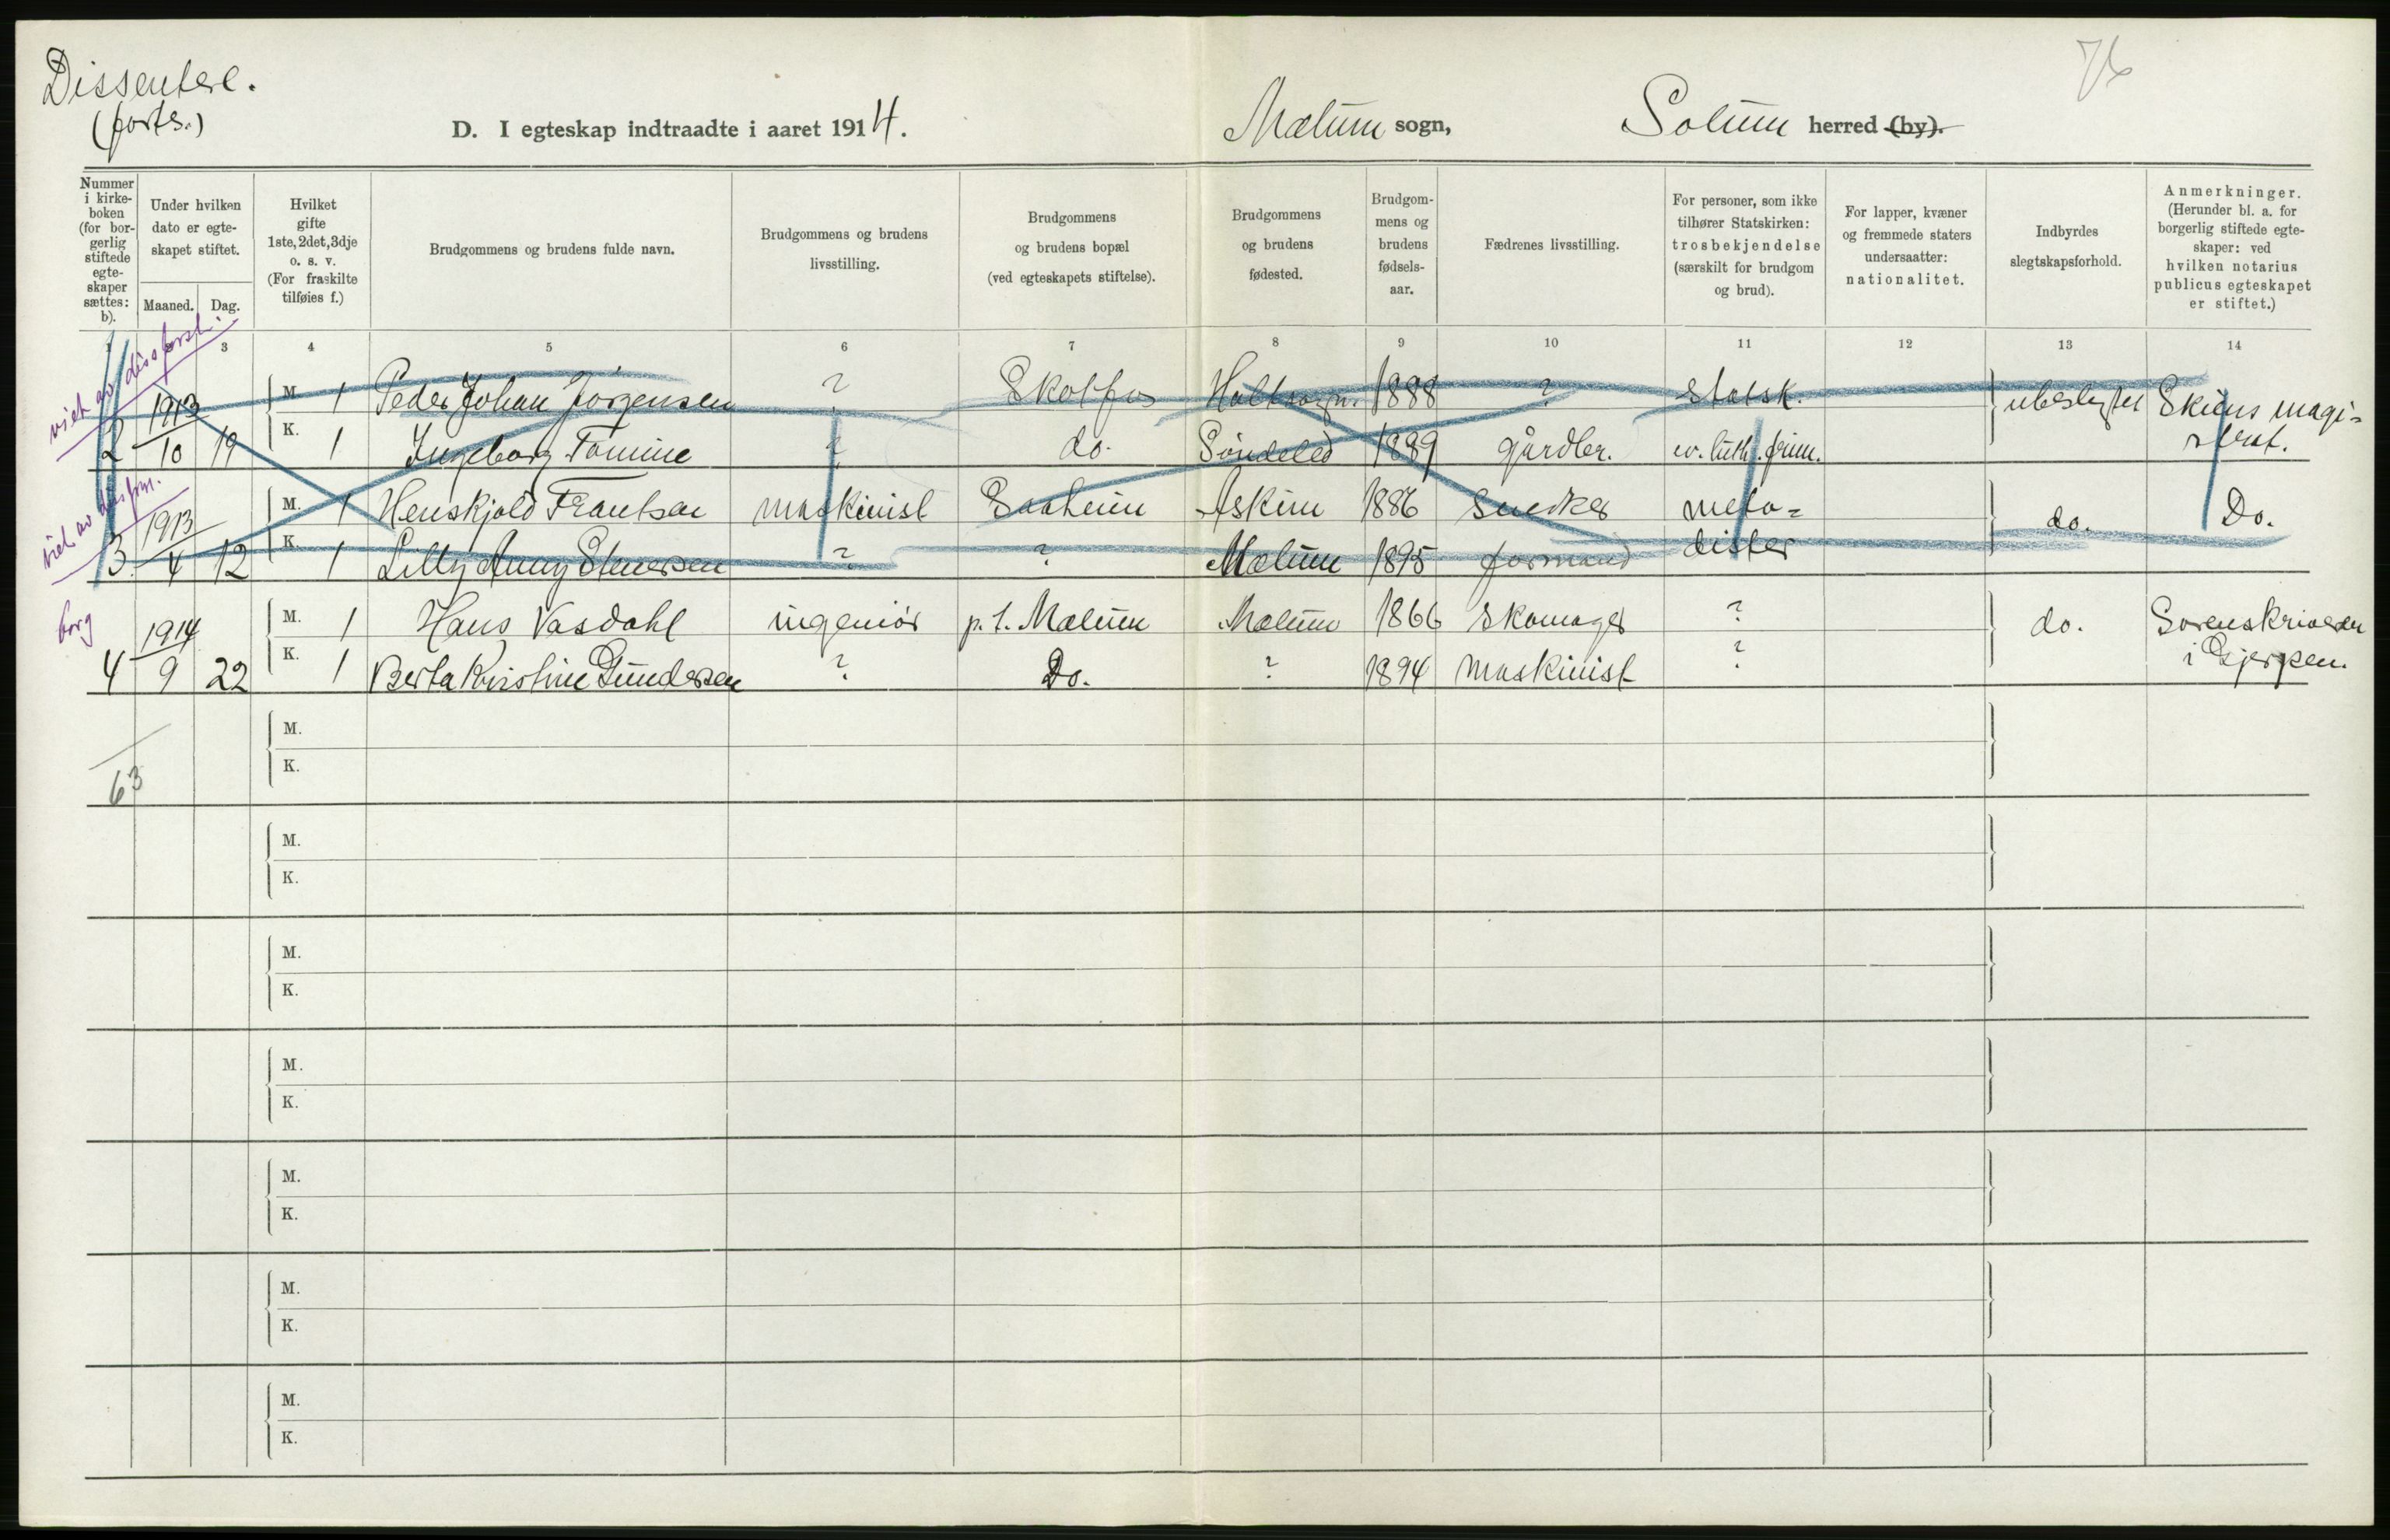 Dissentere.
(forts.)
76
D. I egteskap indtraadte i aaret 1914.
Mælum sogn,
Solum herred (by).
Nummer i kirkeboken (for borgerlig stiftede egteskaper sættes: b).
Under hvilken dato er egteskapet stiftet.
Maaned. Dag.
Hvilket gifte 1ste, 2det, 3dje o. s. v. (For fraskilte tilføies f.)
Brudgommens og brudens fulde navn.
Brudgommens og brudens livsstilling.
Brudgommens og brudens bopæl (ved egteskapets stiftelse).
Brudgommens og brudens fødested.
Brudgommens og brudens fødselsaar.
Fædrenes livsstilling.
For personer, som ikke tilhører Statskirken: trosbekjendelse (særskilt for brudgom og brud).
For lapper, kvæner og fremmede staters undersaatter: nationalitet.
Indbyrdes slegtskapsforhold.
Anmerkninger. (Herunder bl. a. for borgerlig stiftede egteskaper: ved hvilken notarius publicus egteskapet er stiftet.)
1 2 3 4 5 6 7 8 9 10 11 12 13 14
viet av diss.forst.
1913 M. 1 Peder Johan Jörgensen ? Skotfos Holt sogn. 1888 ? statsk. ubeslegtet Skiens magi-
2 10 19 K. 1 Ingeborg Tomine ? do. Söndeled 1889 gårdbr. ev. luth. frim. strat.
viet av diss.frm.
1913 M. 1 Henskjold Frantsen maskinist Saaheim Askim 1886 snedker meto-
3. 4 12 K. 1 Lilly Anny ? ? Mælum 1895 formand dister do. Do.
borg
1914 M. 1 Hans Vasdahl ingeniör p. t. Mælum Mælum 1866 skomager ? do. Sorenskriveren
4 9 22 K. 1 Berta Kristine Gundersen ? Do. ? 1894 maskinist ? i Gjerpen.
M.
K.
63
M.
K.
M.
K.
M.
K.
M.
K.
M.
K.
M.
K.